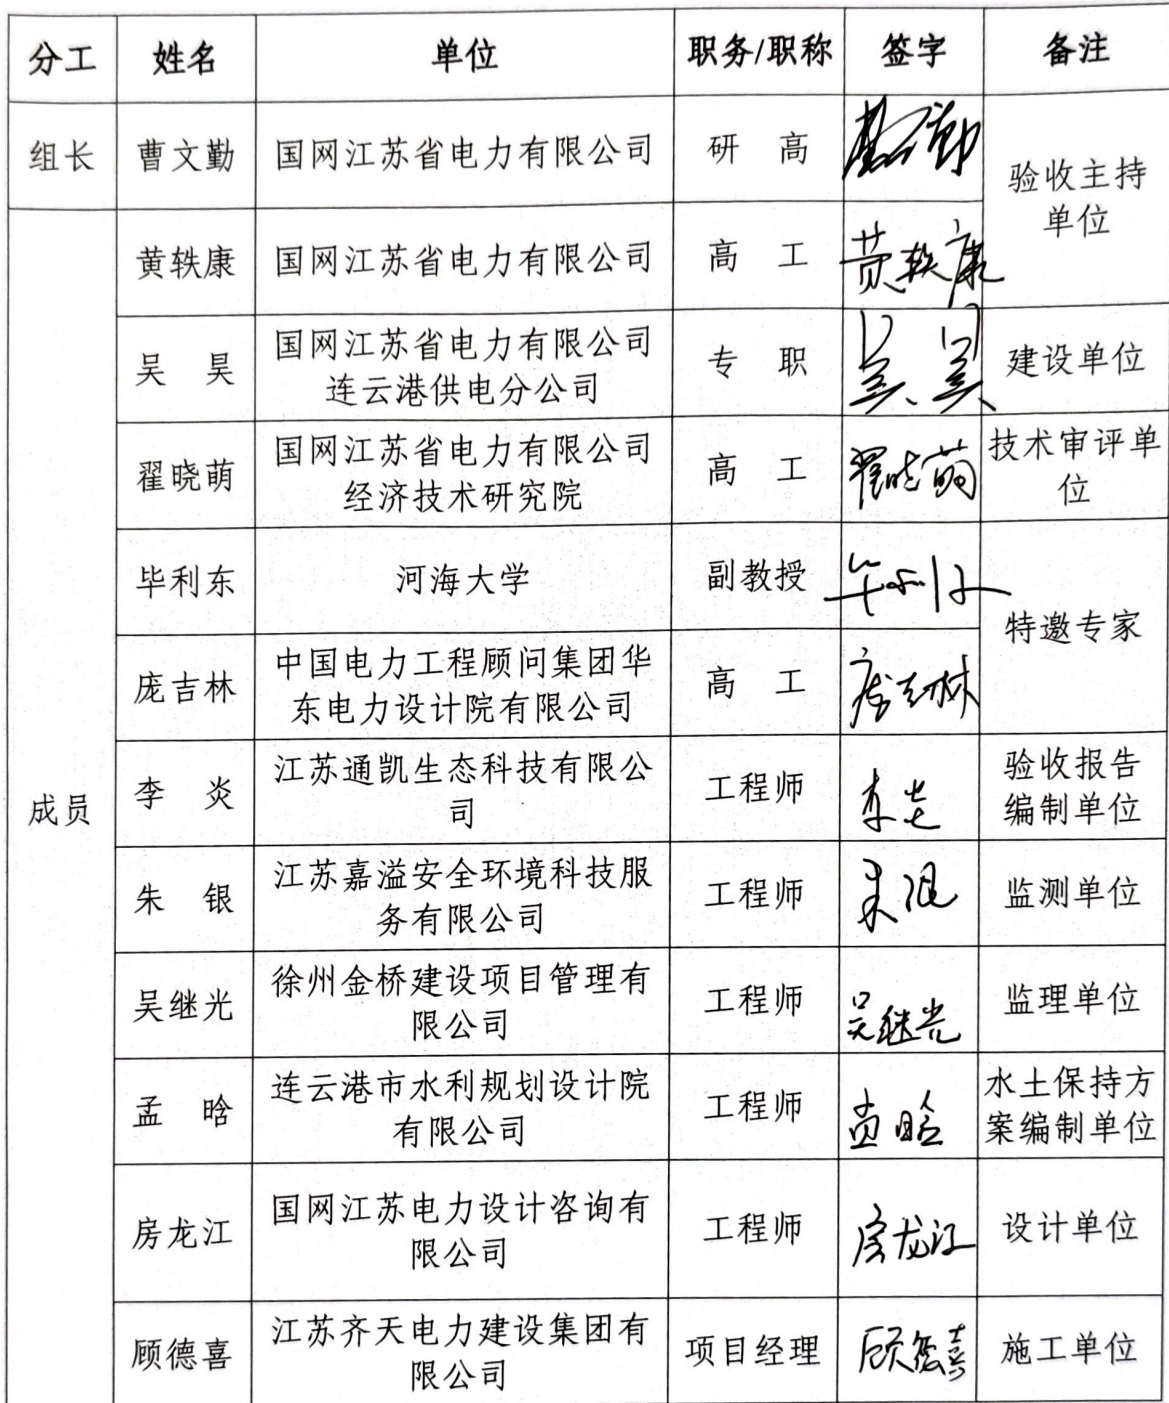 分工 姓名 单位 职务/职称 签字 备注
组长 曹文勤 国网江苏省电力有限公司 研 高 曹文勤
验收主持
单位
黄轶康 国网江苏省电力有限公司 高 工 黄轶康
成员
吴 昊
国网江苏省电力有限公司
连云港供电分公司
专 职 吴昊 建设单位
翟晓萌
国网江苏省电力有限公司
经济技术研究院
高 工 翟晓萌
技术审评单
位
毕利东 河海大学 副教授 毕利东
特邀专家
庞吉林
中国电力工程顾问集团华
东电力设计院有限公司
高 工 庞吉林
李 炎
江苏通凯生态科技有限公
司
工程师 李炎
验收报告
编制单位
朱 银
江苏嘉溢安全环境科技服
务有限公司
工程师 朱银 监测单位
吴继光
徐州金桥建设项目管理有
限公司
工程师 吴继光 监理单位
孟 晗
连云港市水利规划设计院
有限公司
工程师 孟晗
水土保持方
案编制单位
房龙江
国网江苏电力设计咨询有
限公司
工程师 房龙江 设计单位
顾德喜
江苏齐天电力建设集团有
限公司
项目经理 顾德喜 施工单位